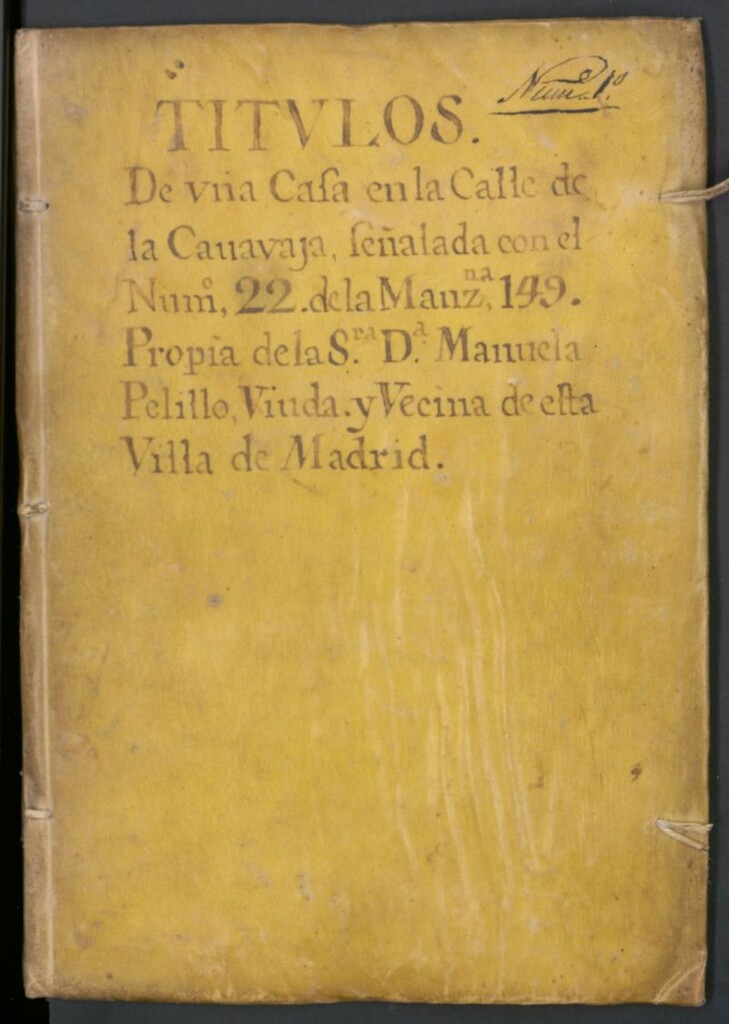 Num.º 1.º
TITVLOS.
De vna Casa en la Calle de
la Cauavaja, señalada con el
Num.º, 22. de la Manz.na, 149.
Propia de la S.ra D.a Manuela
Pelillo, Viuda. y Vecina de esta
Villa de Madrid.